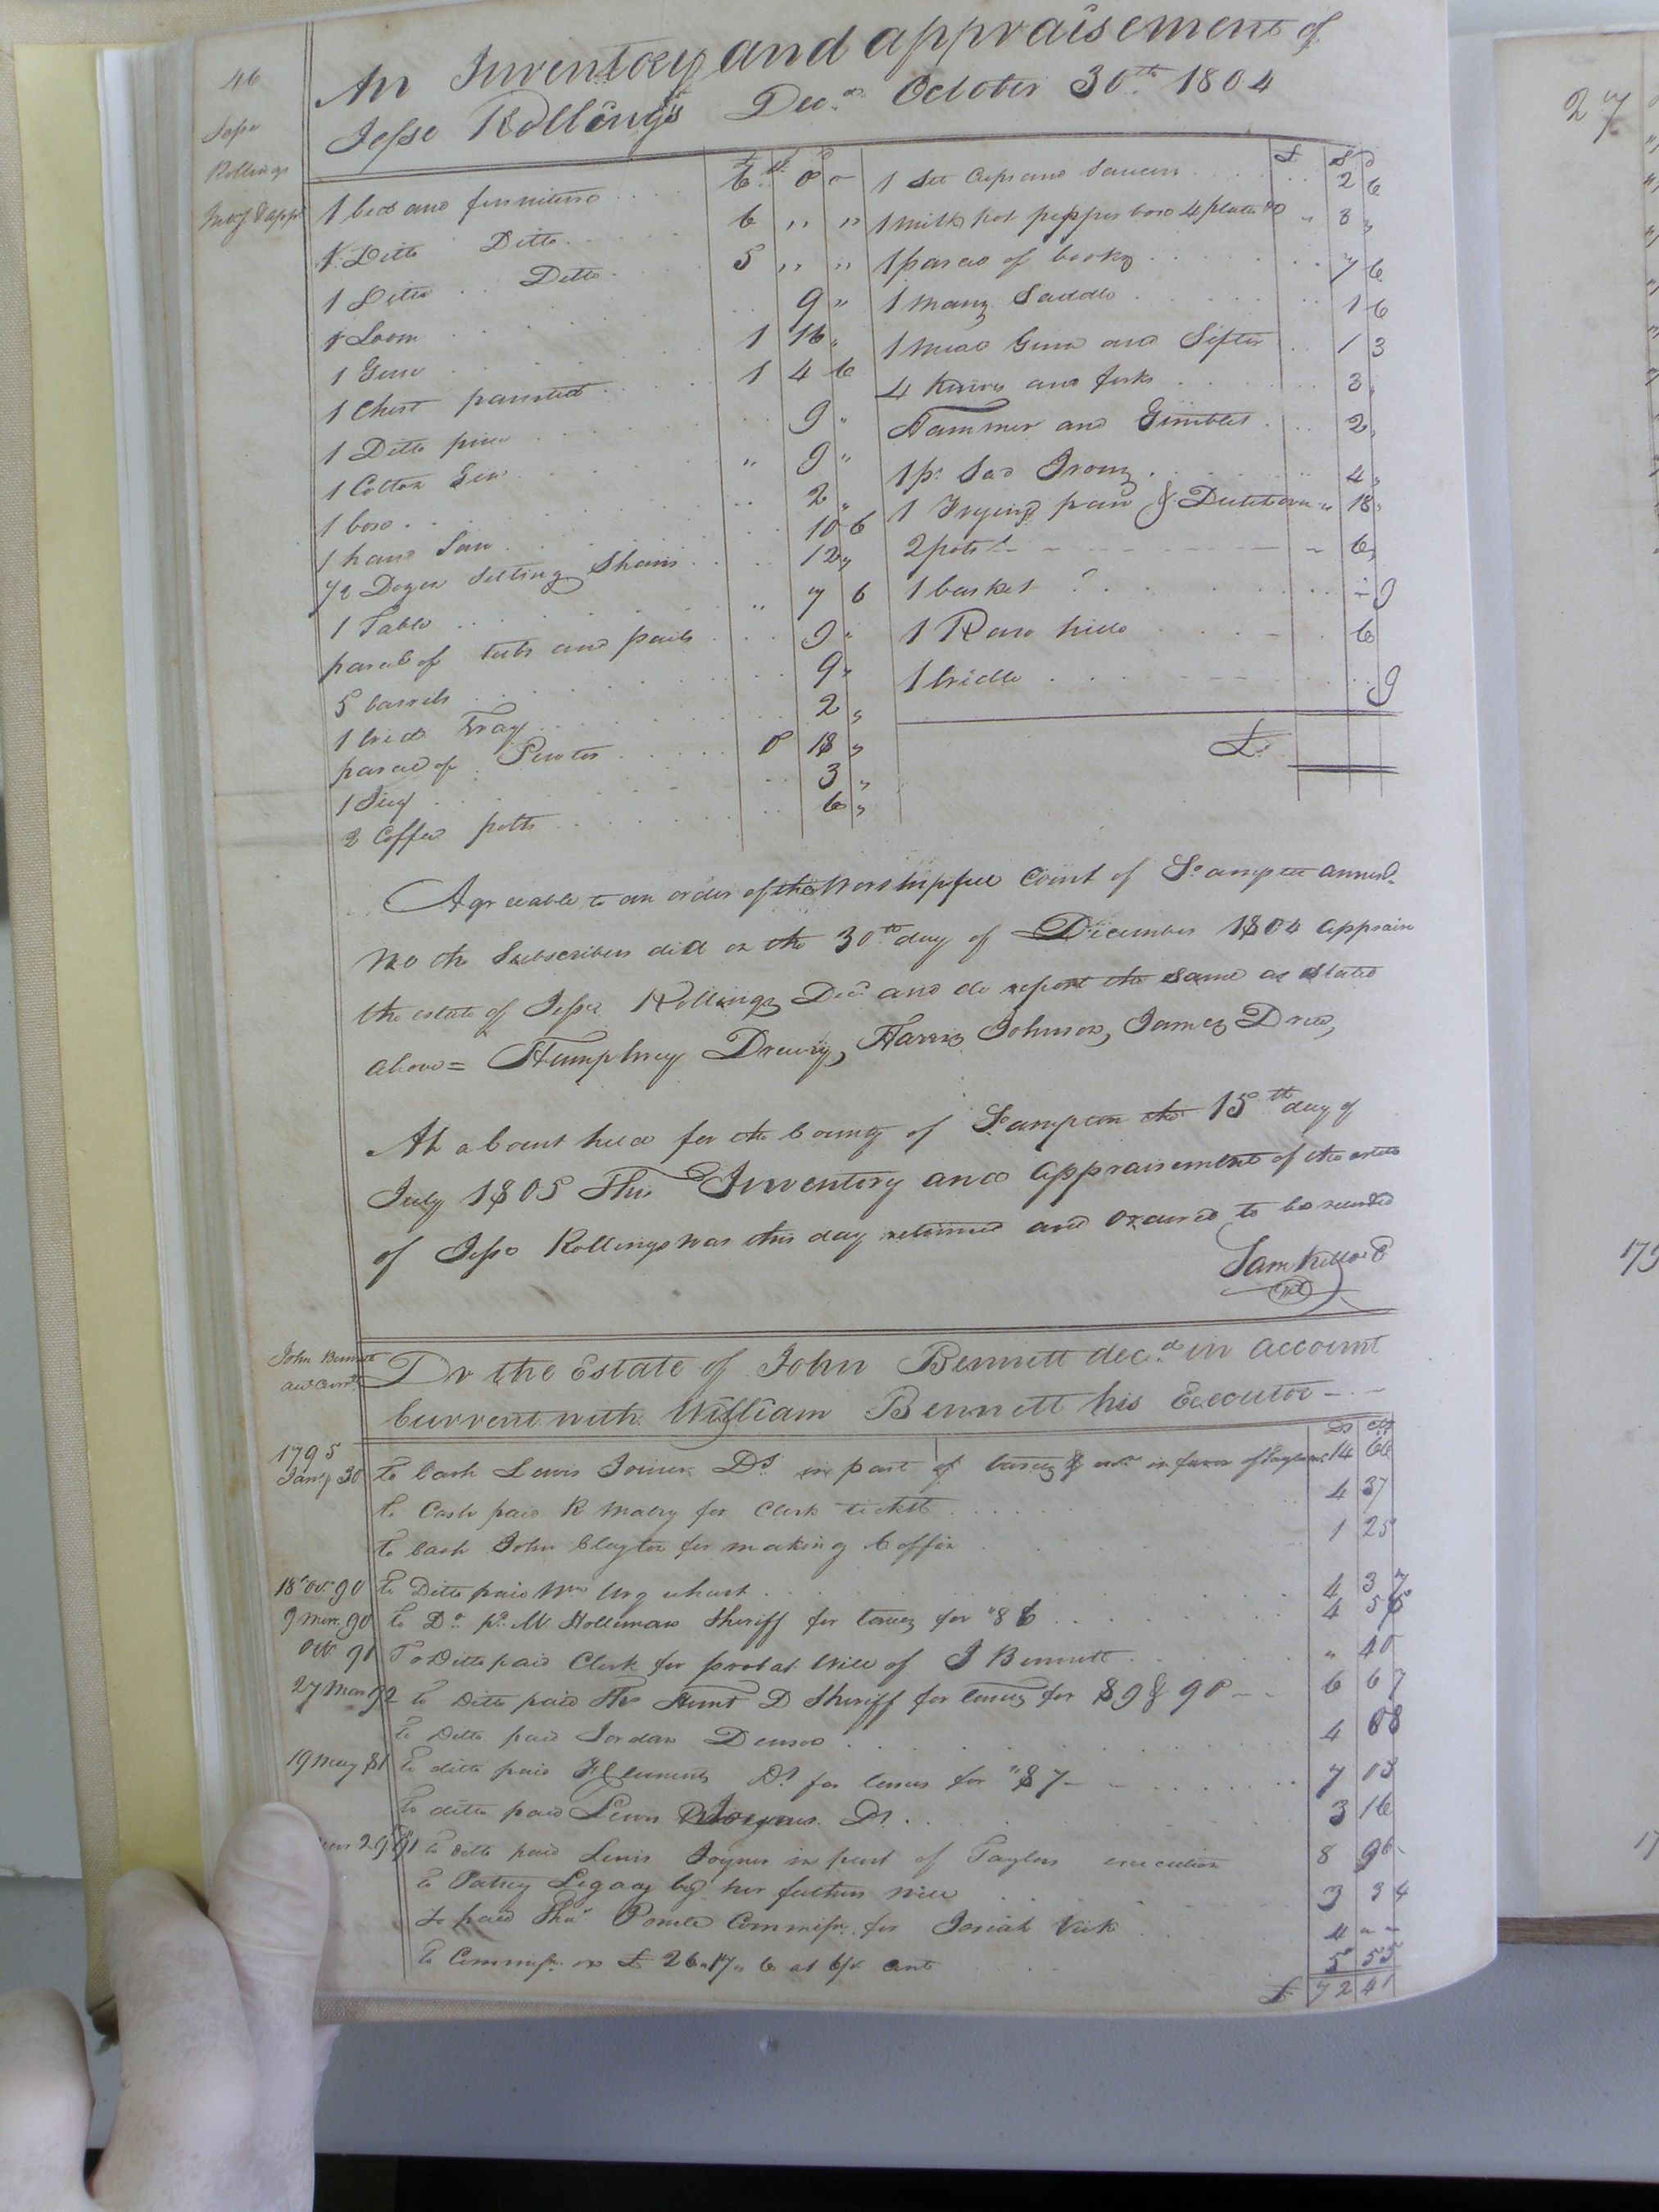 46
An Inventory and appraisement of
Jesse Rollings Decd. October 30th 1804
Jesse
Rollings
Invy & appt
£ S D
1 bed and furniture 6 0 0
1 Ditto Ditto 6 " "
1 Ditto Ditto 5 " "
1 Loom 9 "
1 Gun 1 16 "
1 Chest painted 1 4 6
1 Ditto pine 9 "
1 Cotton Gin " 9 "
1 box 2 "
1 hand Saw 10 6
1/2 Dozen Setting Chairs 12 "
1 Table " 7 6
parcel of tubs and pails 9 "
5 barrels 9 "
1 bread Tray 2 "
parcel of Pewter 0 18 "
1 Jug 3 "
2 Coffee potts 6 "
£ S D
1 Set Cups and Saucers 2 6
1 milk pot pepper box 4 plates &c " 3 "
1 parcel of books 7 6
1 mans Saddle 1 6
1 meal Gum and Sifter 1 3
4 Knives and forks 3 "
Hammer and Gimblet 2 "
1 pr. Sad Irons 4 "
1 Frying pan & Dutchoven " 18 "
2 pots " 6 "
1 basket 9
1 Raw hide 6
1 bridle 9
£
Agreeable to an order of the Worshipfull Court of So.ampton annexed
We the Subscribers did on the 30th day of December 1804 appraise
the estate of Jesse Rollings Decd and do report the same as stated
above = Humphrey Drewry, Harris Johnson, James Drew,
At a Court held for the County of So.ampton the 15th day of
July 1805 This Inventory and appraisement of the estate
of Jesse Rollings was this day returned and Ordered to be recorded
Sam Kello C
John Bennett
acct Currt.
Dr the Estate of John Bennett decd. in account
Current with William Bennett his Executor
Ds Cts
1795
Jany 30 to Cash Lewis Joiner DS. in part of in favor of Taylor 14 66
to Cash paid R Mabry for Clerk tickett 4 37
to Cash John Clayton for making Coffin 1 25
90 to Ditto paid Wm Urquhart 4 37
90 to Do. pd. M Holliman Sheriff for taxes for "86 4 56
Oct 91 To Ditto paid Clerk for probat Will of J Bennett " 40
27 Mar 92 to Ditto paid Hunt D Sheriff for taxes for 89 & 90 6 67
to Ditto paid Jordan Denson 4 08
19 May 81 to ditto paid Clements DS for taxes for "87 7 03
to ditto paid Lewis Joyner DS. 3 16
29 91 to ditto paid Lewis Joyner in part of Taylors execution 8 96
to Patsey Legacy by her fathers Will 3 34
To paid Commissr. for Josiah Vick 4 - -
to Commissn. on £ 26.17.6 at 6 pr cent 5 55
£ 72 41
27